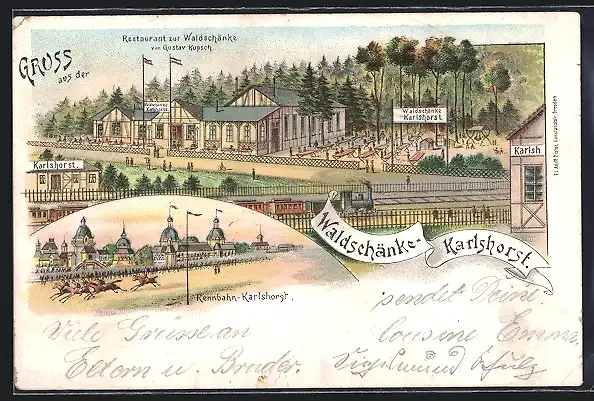 Restaurant zur Waldschänke
von Gustav Kupsch.
GRUSS
aus der
Waldschänke
Karlshorst.
Waldschänke
Karlshorst.
Karlshorst.
Karlsh
Waldschänke-
Karlshorst.
Rennbahn-Karlshorst.
Viele Grüsse an
Eltern u. Bruder.
sendet Deine
Cousine Emma